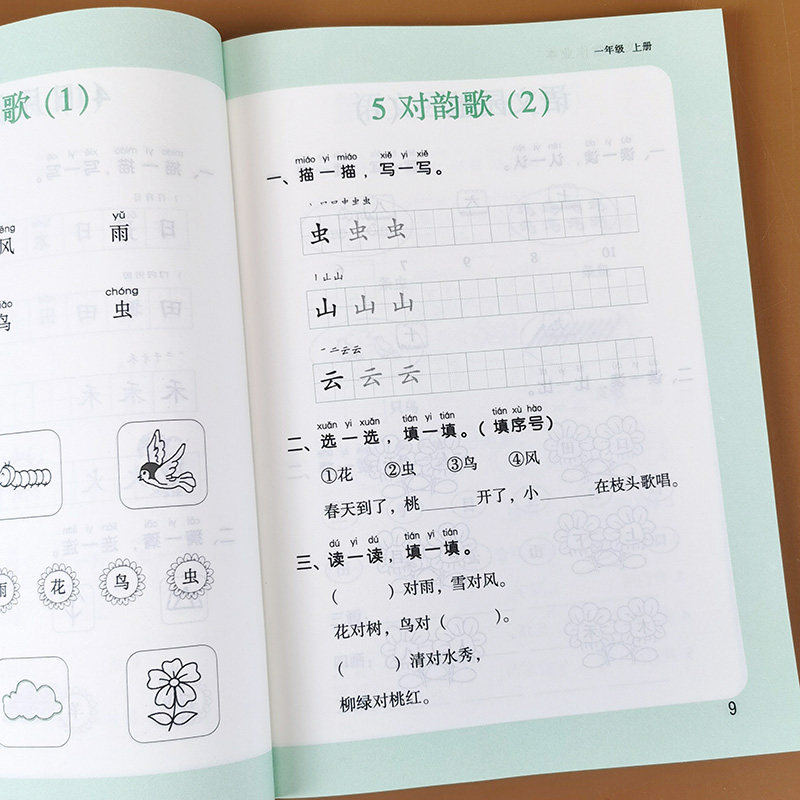 歌（1）
yǔ
风 雨
chóng
鸟 虫
花 鸟 虫
一年级 上册
5 对韵歌（2）
miáo yi miáo xiě yi xiě
一、描一描，写一写。
虫 虫 虫
山 山 山
云 云 云
xuǎn yi xuǎn tián yi tián tián xù hào
二、选一选，填一填。（填序号）
①花 ②虫 ③鸟 ④风
春天到了，桃______开了，小______在枝头歌唱。
dú yi dú tián yi tián
三、读一读，填一填。
（ ）对雨，雪对风。
花对树，鸟对（ ）。
（ ）清对水秀，
柳绿对桃红。
9